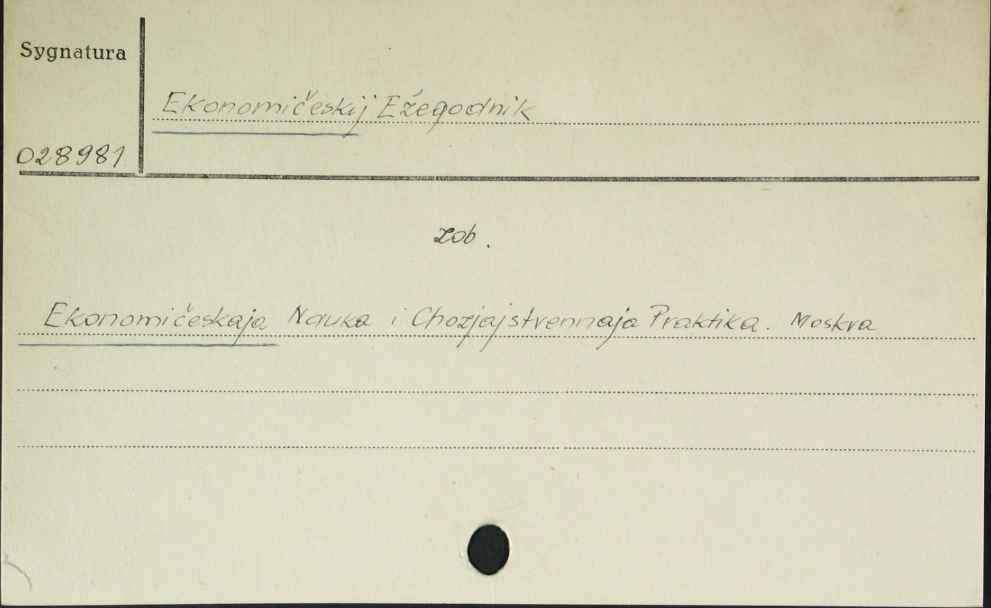 Sygnatura
Ekonomičeskij Ežegodnik
028981
zob.
Ekonomičeskaja Nauka i Chozjajstvennaja Praktika. Moskva